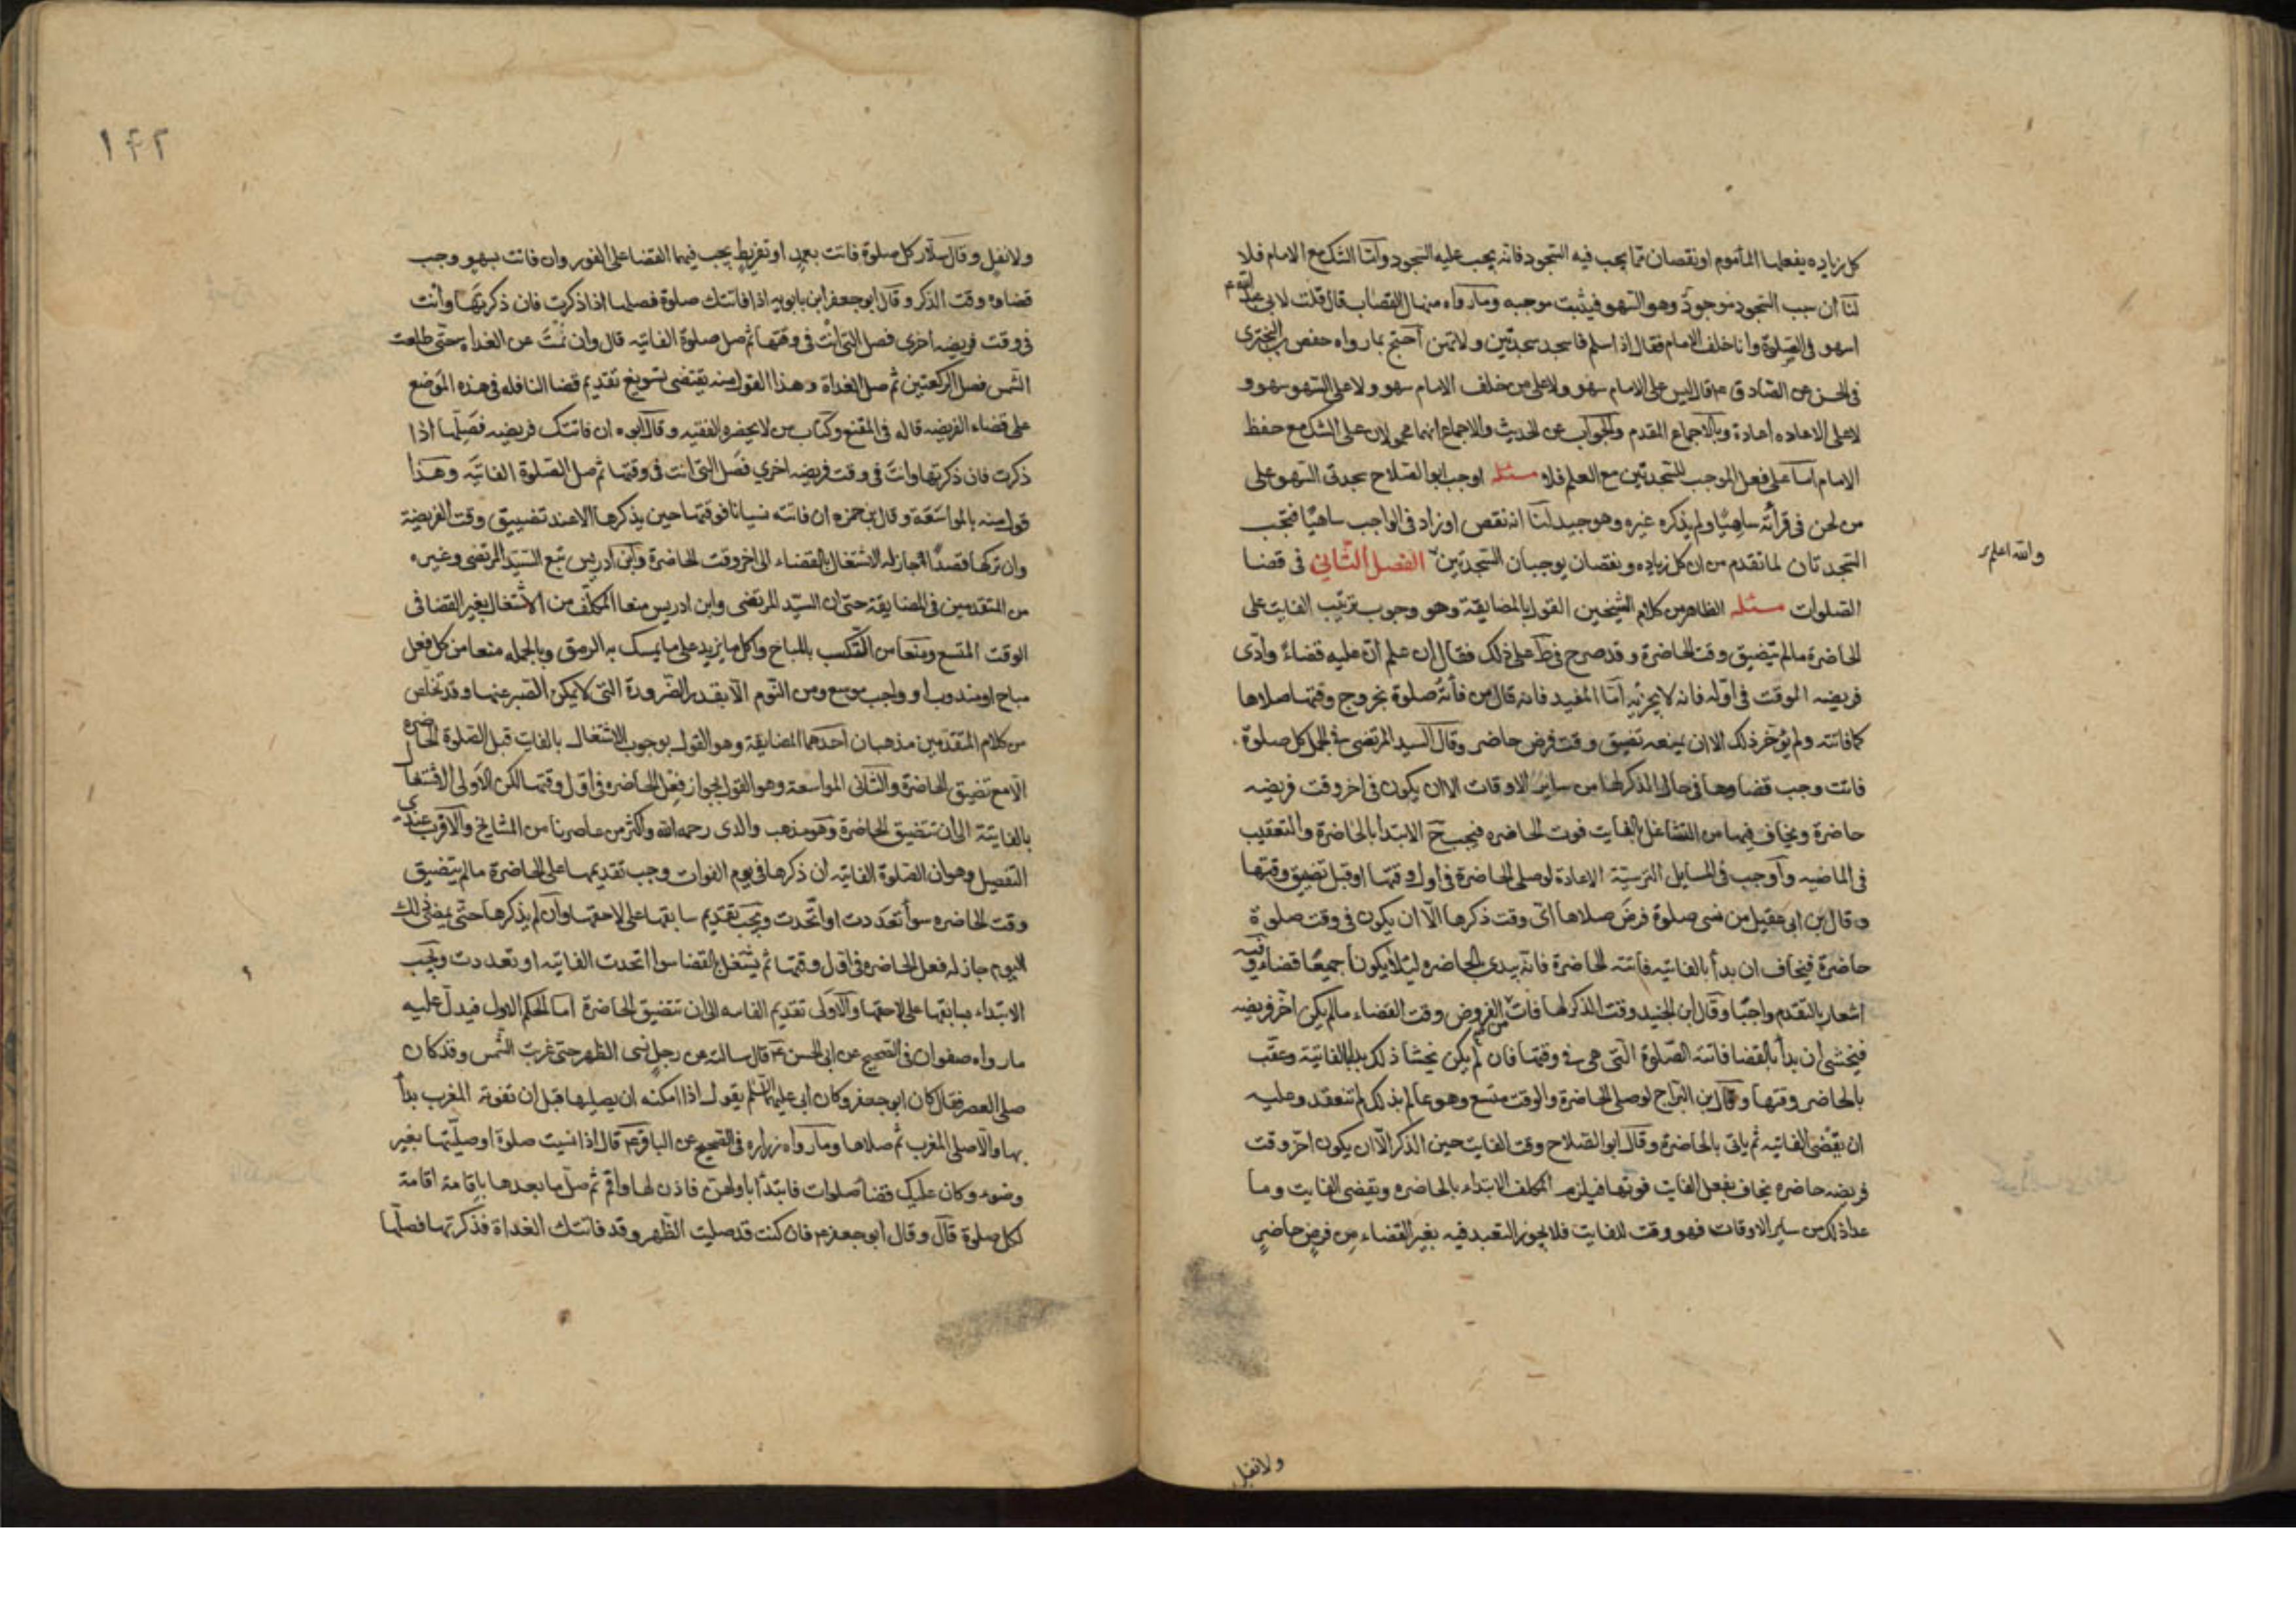 كل زياده يفعلها المأموم او نقصان مما يجب فيه السجود فانه يجب عليه السجود وأما الشك مع الامام فلا
لنا ان سبب السجود موجود وهو السهو فيثبت موجبه وما رواه منهال القصاب قال قلت لابى عبد الله ع
اسهو فى الصلوة وانا خلف الامام فقال اذا سلم فاسجد سجدتين ولا تهن احتج بما رواه حفص بن البخترى
فى الحسن عن الصادق ع قال ليس على الامام سهو ولا على من خلف الامام سهو ولا على السهو سهو و
لا على الاعاده اعادة وبالاجماع المقدم والجواب عن الحديث والاجماع انهما محمولان على الشك مع حفظ
الامام اما على فعل الموجب للسجدتين مع العلم فلا مسئله اوجب ابو الصلاح سجدتى السهو على
من لحن فى قرأته ساهيا ولم يذكره غيره وهو جيد لنا انه نقص او زاد فى الواجب ساهيا فتجب
السجدتان لما تقدم من ان كل زياده ونقصان يوجبان السجدتين الفصل الثانى فى قضا
والله اعلم
الصلوات مسئله الظاهر من كلام الشيخين القول بالمضايقة وهو وجوب ترتيب الفايت على
الحاضرة ما لم يتضيق وقت الحاضرة وقد صرح فى ط على ذلك فقال ان علم ان عليه قضاء وادى
فريضه الوقت فى اوله فانه لا يجزئه اما المفيد فانه قال من فاته صلوة بخروج وقتها صلاها
كما فاتته ولم يؤخر ذلك الا ان يمنعه تضيق وقت فرض حاضر وقال السيد المرتضى فى الجمل كل صلوة
فاتت وجب قضاوها فى حال الذكر لها من ساير الاوقات الا ان يكون فى اخر وقت فريضه
حاضرة ويخاف فيها من التشاغل بالفايت فوت الحاضره فيجب ح الابتدا بالحاضرة والتعقيب
فى الماضيه وأوجب فى المسايل الرسية الاعادة لو صلى الحاضرة فى اول وقتها او قبل تضيق وقتها
وقال بن ابى عقيل من نسى صلوة فرض صلاها اى وقت ذكرها الا ان يكون فى وقت صلوة
حاضرة فيخاف ان بدأ بالفايته فاتته الحاضرة فانه يبدى بالحاضره ليلا يكونا جميعا قضاء وفيه
اشعار بالتقدم واجبا وقال ابن الجنيد وقت الذكر لما فات من الفروض وقت القضاء ما لم يكن اخر فريضه
فيخشى ان بدأ بالقضا فاتته الصلوة التى هى فى وقتها فان لم يكن يخشا ذلك بدا بالفايتة وعقب
بالحاضر وقتها وقال بن البراج لو صلى الحاضرة والوقت متسع وهو عالم بذلك لم تنعقد وعليه
ان يقضى الفايته ثم ياتى بالحاضرة وقال ابو الصلاح وقت الفايت حين الذكر الا ان يكون اخر وقت
فريضه حاضره يخاف بفعل الفايت فوتها فيلزم المكلف الابتداء بالحاضره ويقضى الفايت وما
عدا ذلك من ساير الاوقات فهو وقت للفايت فلا يجوز التعبد فيه بغير القضاء من فرض حاضر
ولا نفل
١٤٢
ولا نفل وقال سلار كل صلوة فاتت بعمد او تفريط يجب فيها القضا على الفور وان فاتت بسهو وجب
قضاوه وقت الذكر وقال ابو جعفر ابن بابويه اذا فاتتك صلوة فصلها اذا ذكرت فان ذكرتها وانت
فى وقت فريضه اخرى فصل التى انت فى وقتها ثم صل صلوة الفايته قال وان نمت عن الغداة حتى طلعت
الشمس فصل الركعتين ثم صل الغداة وهذا القول منه يقتضى تسويغ تقديم قضا النافله فى هذه الموضع
على قضاء الفريضه قاله فى المقنع وكتاب من لا يحضره الفقيه وقال ابوه ان فاتتك فريضه فصلها اذا
ذكرت فان ذكرتها وانت فى وقت فريضه اخرى فصل التى انت فى وقتها ثم صل الصلوة الفايته وهذا
قول منه بالمواسعة وقال بن حمزه ان فاتته نسيانا فوقتها حين يذكرها الا عند تضييق وقت الفريضة
وان تركها قصدا جاز له الاشتغال بالقضاء الى اخر وقت الحاضرة وابن ادريس تبع السيد المرتضى وغيره
من المتقدمين فى المضايقة حتى ان السيد المرتضى وابن ادريس منعا المكلف من الاشتغال بغير القضا فى
الوقت المتسع ومنعا من التكسب بالمباح واكل ما يزيد على ما يمسك به الرمق وبالجمله منعا من كل فعل
مباح او مندوب او واجب موسع ومن النوم الا بقدر الضرورة التى لا يمكن الصبر عنها وقد تخلص
من كلام المتقدمين مذهبان احدهما المضايقة وهو القول بوجوب الاشتغال بالفايت قبل الصلوة الحاضره
الا مع تضيق الحاضرة والثانى المواسعة وهو القول بجواز فعل الحاضره فى اول وقتها لكن الاولى الاشتغال
بالفايتة الى ان تتضيق الحاضرة وهو مذهب والدى رحمه الله واكثر من عاصرنا من المشايخ والاقرب عندى
التفصيل وهو ان الصلوة الفايته ان ذكرها فى يوم الفوات وجب تقديمها على الحاضرة ما لم يتضيق
وقت الحاضره سوأ تعددت او اتحدت ويجب تقديم سابقها على لاحقها وان لم يذكرها حتى يمضى ذلك
اليوم جاز له فعل الحاضره فى اول وقتها ثم يشتغل بالقضا سوا اتحدت الفايته او تعددت ويجب
الابتداء بسابقها على لاحقها والاولى تقديم الفايته الى ان تتضيق الحاضرة اما الحكم الاول فيدل عليه
ما رواه صفوان فى الصحيح عن ابى الحسن ع قال سالته عن رجل نسى الظهر حتى غربت الشمس وقد كان
صلى العصر فقال كان ابو جعفر وكان ابى عليهما السلم يقول اذا امكنه ان يصليها قبل ان تفوته المغرب بدأ
بها والا صلى المغرب ثم صلاها وما رواه زراره فى الصحيح عن الباقر ع قال اذا نسيت صلوة او صليتها بغير
وضوء وكان عليك قضأ صلوات فابتدأ باولهن فاذن لها واقم ثم صل ما بعدها باقامة اقامة
لكل صلوة قال وقال ابو جعفر ع فان كنت قد صليت الظهر وقد فاتتك الغداة فذكرتها فصلها